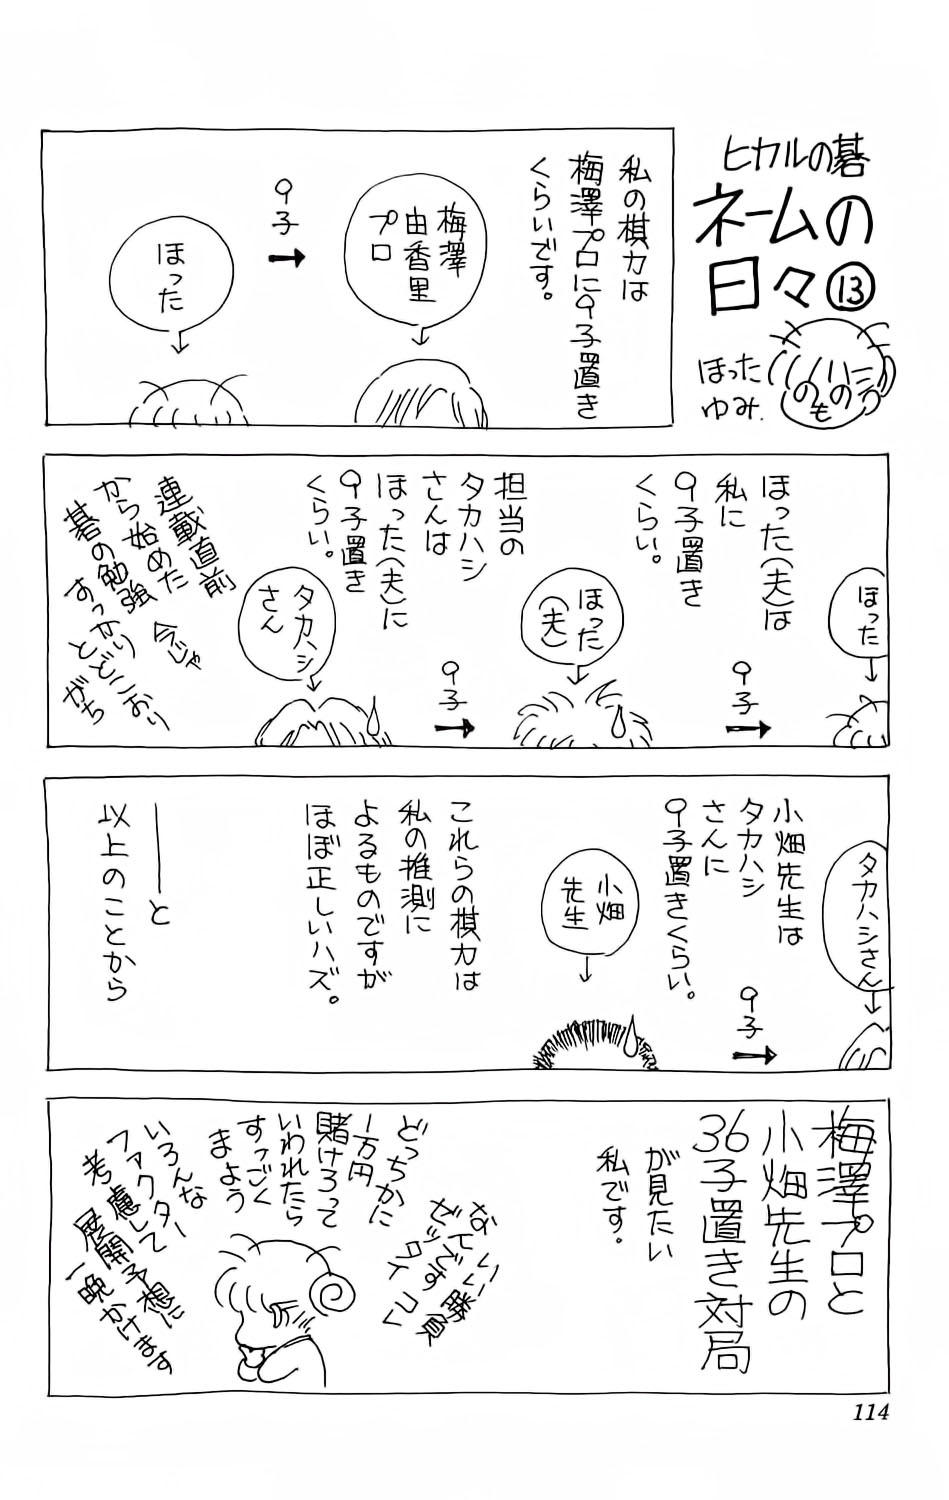 ヒカルの碁
ネームの
日々⑬
ほった
ゆみ.
私の棋力は
梅澤プロに9子置き
くらいです。
梅澤
由香里
プロ
9子
ほった
ほった(夫)は
私に
9子置き
くらい。
ほった
9子
ほった
(夫)
担当の
タカハシ
さんは
ほった(夫)に
9子置き
くらい。
9子
タカハシ
さん
連載直前
から始めた
碁の勉強
今じゃ
すっかり
とどこおり
がち
小畑先生は
タカハシ
さんに
9子置きくらい。
タカハシさん
9子
小畑
先生
これらの棋力は
私の推測に
よるものですが
ほぼ正しいハズ。
――と
以上のことから
梅澤プロと
小畑先生の
36子置き対局
が見たい
私です。
いい勝負
なんです
ゼッタイコレ
どっちかに
1万円
賭けろって
いわれたら
すっごく
まよう
いろんな
ファクター
考慮して
展開予想に
一晩かけます
114